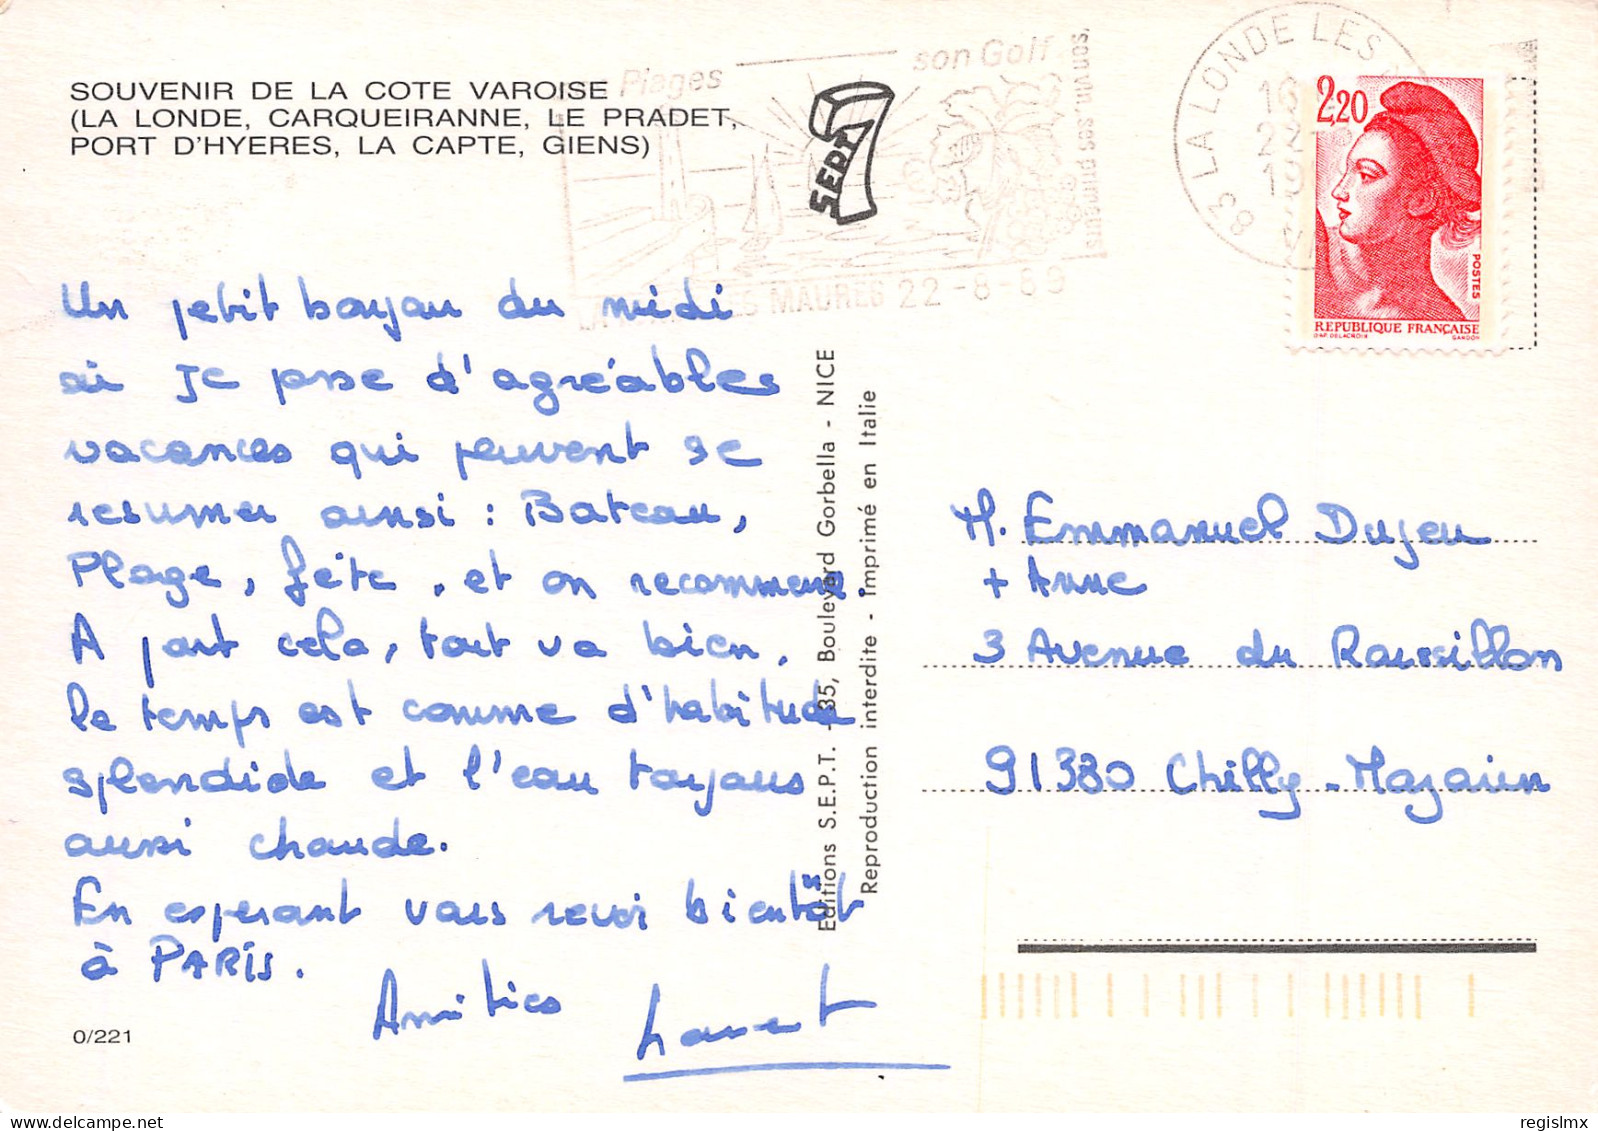 SOUVENIR DE LA COTE VAROISE
(LA LONDE, CARQUEIRANNE, LE PRADET,
PORT D'HYERES, LA CAPTE, GIENS)
Plages
son Golf
son vin, ses
MAURES 22-8-89
SEPT
83 LA LONDE LES
16
22-
19
2,20
POSTES
REPUBLIQUE FRANÇAISE
D'AP. DELACROIX
GANDON
Un petit bonjour du midi
où Je passe d'agréables
vacances qui peuvent se
resumer ainsi : Bateau,
Plage, fête, et on recommence.
A part cela, tout va bien,
le temps est comme d'habitude
splendide et l'eau toujours
aussi chaude.
En esperant vous revoir bientôt
à PARIS.
Amitiés
Laurent
0/221
Editions S.E.P.T. - 35, Boulevard Gorbella - NICE
Reproduction interdite - Imprimé en Italie
M. Emmanuel Dujeu
+ Anne
3 Avenue du Roussillon
91380 Chilly-Mazarin
regislmx